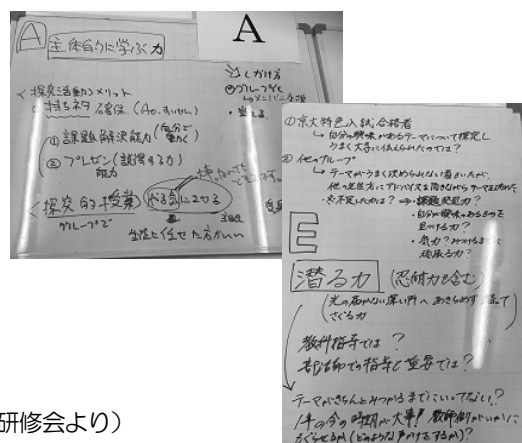 A
A
主体的に学ぶ力
<探究活動メリット
持ちネタ確保(Ao.すいせん)
①課題解決能力(自分で動く)
②プレゼン(説得する力)
能力
<探究的授業 やる気にさせる
グループで
生徒に任せた方がいい
しかけ方
グループ
メンバー
①京大特色入試合格者
→自分の興味があるテーマについて探究し
うまく大学に伝えられたのでは?
②他のグループ
→テーマがうまく決められない者がいたが、
他の先生方にアドバイスを頂きながらテーマを決めた
・不足した力は?→・課題発見力?
・自分が興味のあるものを
見つける力?
・気力?みつけるまで
頑張る力?
E
潜る力(忍耐力を含む)
光の届かない深い所へあきらめず潜って
さぐる力
教科指導では?
部活動での指導と重要では?
テーマがきちんとみつかるまでにいってない?
1年の今の時期が大事!教師側がいかに
もぐらせるか(どのような声かけをするか)?
研修会より)